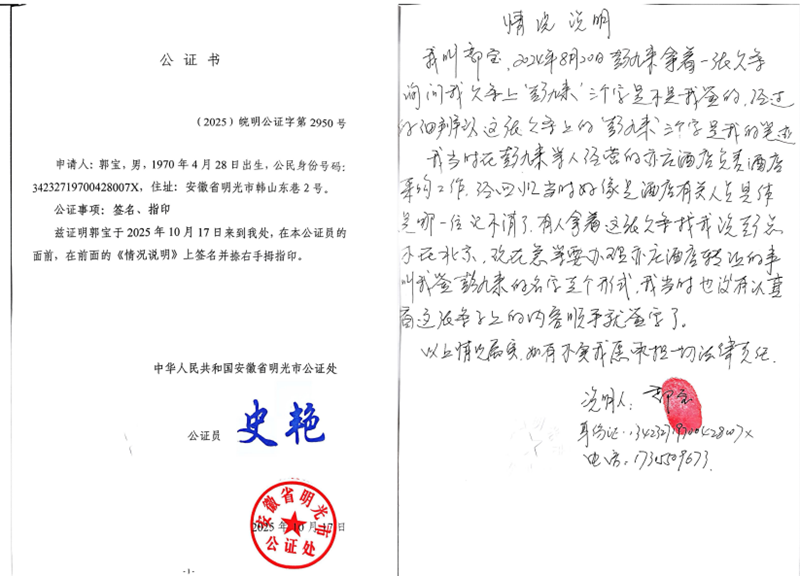 公证书
（2025）皖明公证字第 2950 号
申请人：郭宝，男，1970 年 4 月 28日出生，公民身份号码：
34232719700428007X，住址：安徽省明光市韩山东巷 2 号。
公证事项：签名、指印
兹证明郭宝于 2025 年 10 月 17日来到我处，在本公证员的
面前，在前面的《情况说明》上签名并捺右手拇指印。
中华人民共和国安徽省明光市公证处
公证员 史艳
2025 年 10 月 17 日
安徽省明光市
公证处
-1-
情况说明
我叫郭宝，2024年8月20日彭九来拿着一张欠条
询问我欠条上‘彭九来’三个字是不是我签的，经过
仔细辨认这张欠条上的‘彭九来’三个字是我的笔迹
我当时在彭九来等人经营的亦庄酒店负责酒店
采购工作，经回忆当时好像是酒店有关人员具体
是哪一位记不清了，有人拿着这张欠条找我说彭总
不在北京，现在急需要办理亦庄酒店转让的事
叫我签彭九来的名字走个形式，我当时也没有认真
看这张条子上的内容顺手就签字了。
以上情况属实，如有不实我愿承担一切法律责任。
说明人：郭宝
身份证：34232719700428007X
电话：